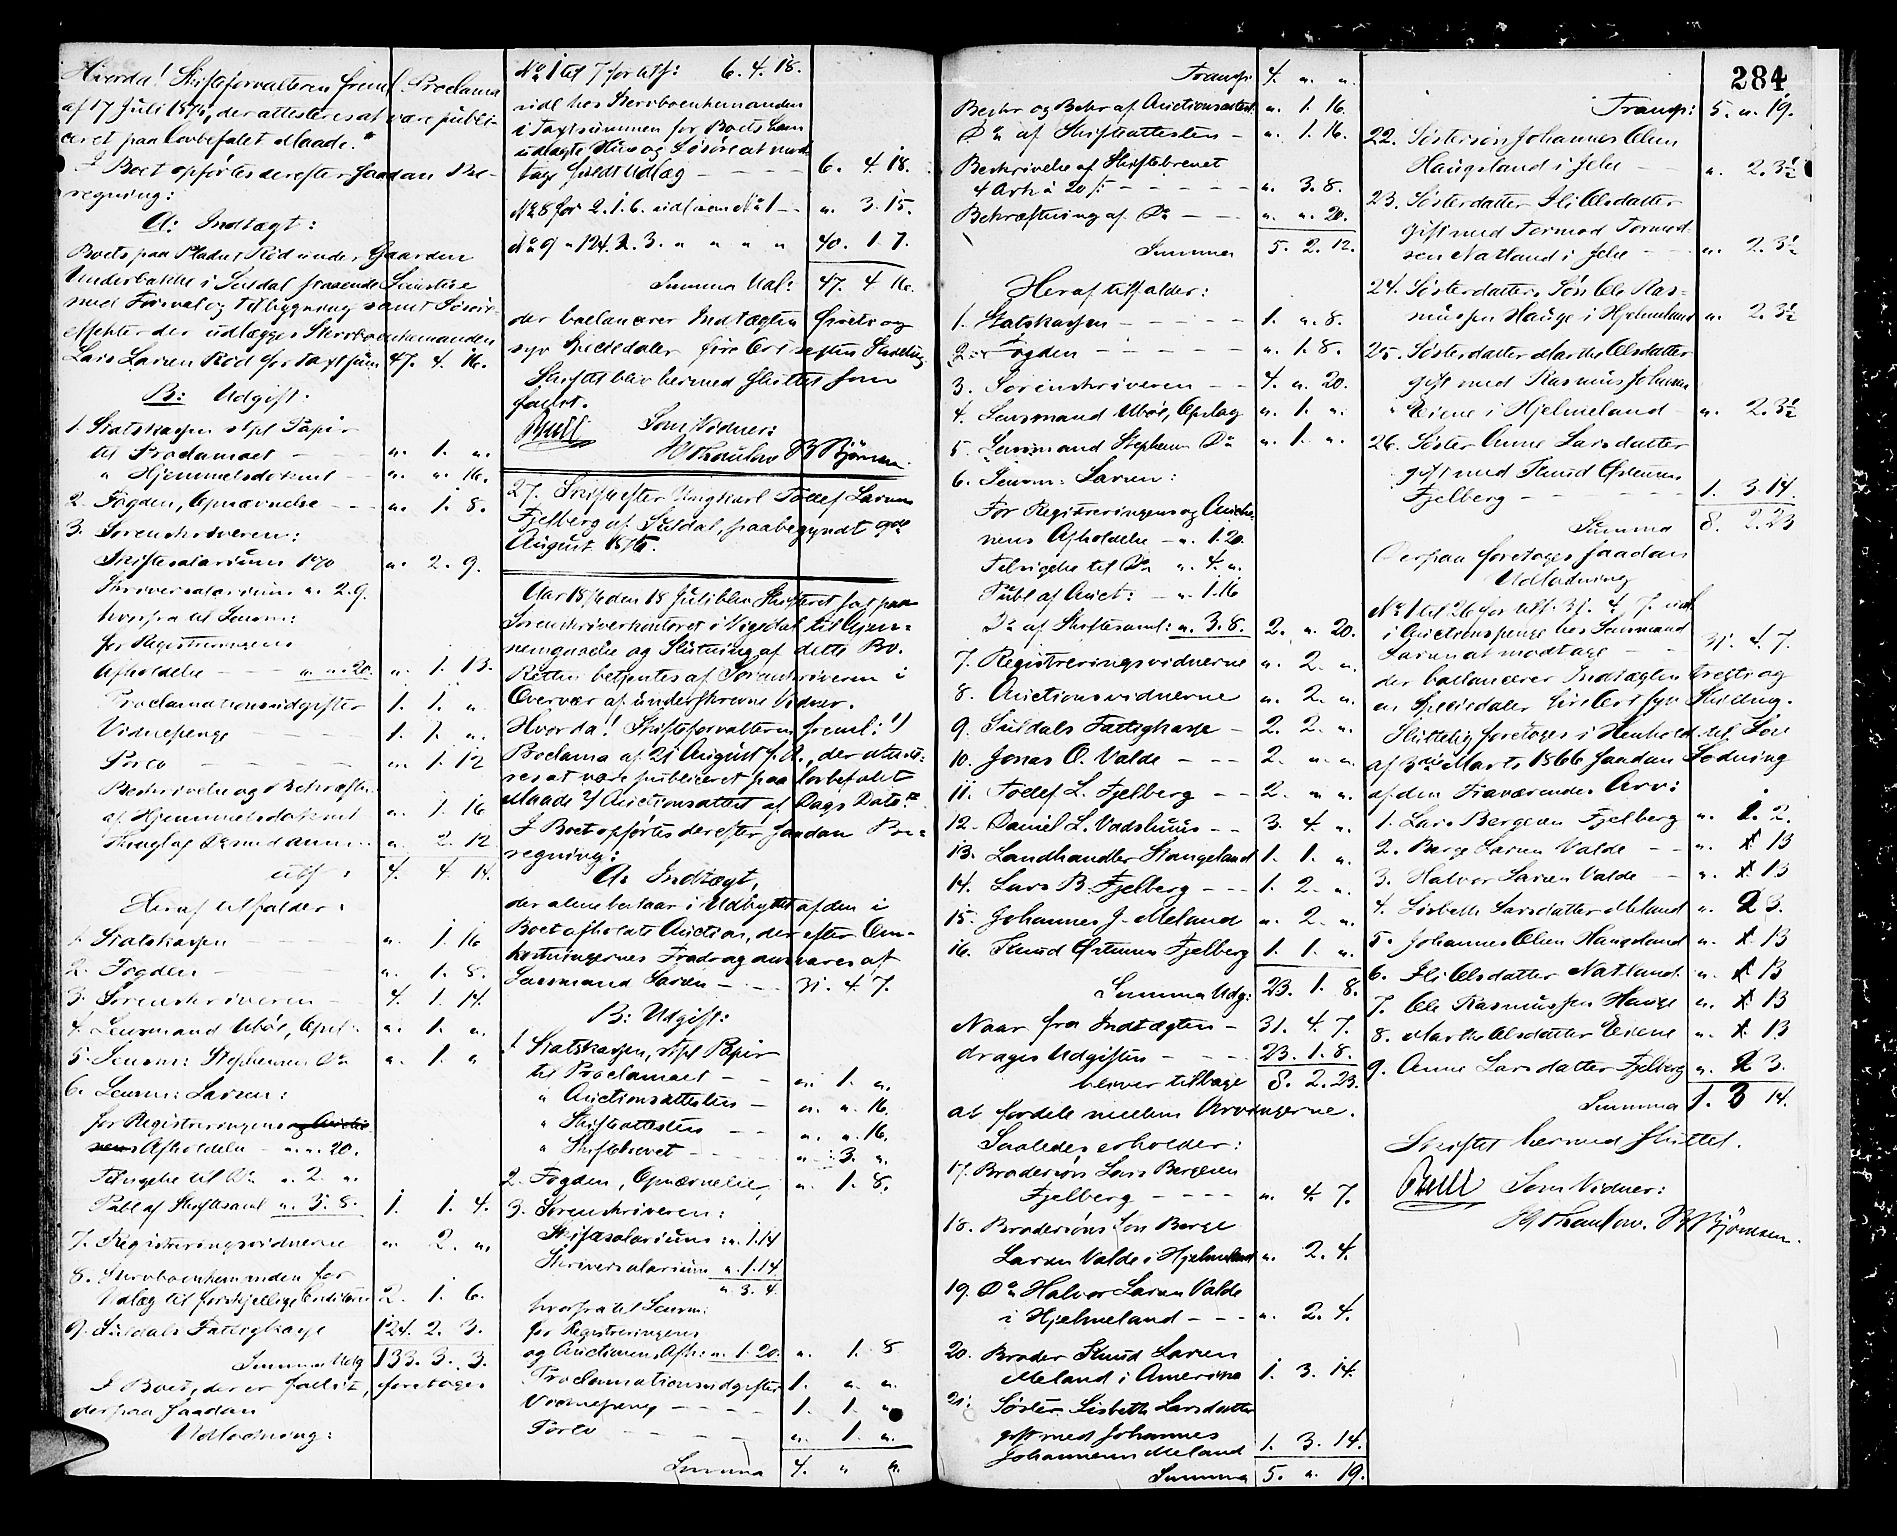 Hvorda! Skifteforvalteren freml. Proclama
af 17 Juli 1875, der attesteres at være publi-
ceret paa lovbefalet Maade.
I Boet opførtes derefter saadan Be-
regning:
A: Indtægt:
Boets paa Pladset Rød under Gaarden
i Suldal staaende
med og Tilbygning samt Løsøre
effekter der udlægges Stervboenkemanden
Lars Larsen Rød for Taxtsum 47. 4. 16.
B: Udgift:
1. Statskassen stpl Papir
til Proclamaet - ". 1. ".
" Hjemmelsdokmt - ". ". 16.
2. Fogden, Opnævnelse - - ". 1. 8.
3. Sorenskriveren:
Skiftesalarium 1% ". 2. 9.
Skriversalarium ". 2. 9.
hvorfra til Lensm:
for Registreringens
Afholdelse - - ". ". 20. ". 1. 13.
Proclamationsudgifter 1. 1. ".
Vidnepenge - - - 1. 1. ".
Porto - - - - - ". 1. 12
Beskrivelse og Bekræftn.
af Hjemmelsdokmt ". 1. 16
". 2. 12
4. 4. 14.
Heraf tilfalder:
1. Statskassen - - ". 1. 16
2. Fogden - - ". 1. 8.
3. Sorenskriveren - 4. 1. 14.
4. Lensmand Ubøe, Opsl. ". 1. ".
5. Lensm: Stephensen Do ". 1. "
6. Lensm: Larsen:
for Registreringens og Auctio-
nens Afholdelse - ". ". 20.
Tilsigelse til Do ". 2. ".
Publ af Skiftesaml ". 3. 8. 1. 1. 4.
7. Registreringsvidnerne ". 2. ".
8. Stervboenkemanden for
Udlæg til forskjellige Creditorer 2. 1. 6.
9. Suldals Fattigkasse 124. 2. 3.
Summa Udg 133. 3. 3.
I Boet, der er fallit, foretoges
derpaa saadan
Udlodning:
No 1 til 7 for tilf: 6. 4. 18.
udl hos Stervboenkemanden
i Taxtsummen for Boets ham
udlagte Hus og Løsøre at mod-
tage fuldt Udlæg - - - - 6. 4. 18.
No 8 for 2. 1. 6. udl som No 1 - - ". 3. 15.
No 9 " 124. 2. 3. " " " " 40. 1. 7.
Summa Udl: 47. 4. 16.
der ballancerer Indtægten firti og
syv Speciedaler fire Ort sexten Skilling
Skiftet blev hermed sluttet som
fallit.
Bull Som Vidner:
H Thaulow B Bjørnsen
27. Skifte efter Ungkarl Tollef Larsen
Fjelberg af Suldal, paabegyndt 9de
August 1875.
Aar 1876 den 18 Juli blev Skifteret sat paa
Sorenskriverkontoret i Vigedal til Gjen-
nemgaaelse og Slutning af dette Bo.
Retten betjentes af Sorenskriveren i
Overvær af underskrevne Vidner.
Hvorda! Skifteforvalteren freml: 1)
Proclama af 21 August f. A., der atteste-
res at være publiceret paa lovbefalet
Maade 2) Auctionsattest af Dags Dato.
I Boet opførtes derefter saadan Be-
regning:
A: Indtægt,
der alene bestaar i Udbyttet af den i
Boet afholdte Auction, der efter Om-
kostningernes Fradrag ansvares af
Lensmand Larsen - - - 31. 4. 7.
B: Udgift:
1 Statskassen, stpl Papir
til Proclamaet - - ". 1. ".
" Auctionsattesten - ". ". 16.
" Skifteattesten - - ". ". 16.
" Skiftebrevet - - - - ". 3. ".
2. Fogden, Opnævnelse, ". 1. 8.
3. Sorenskriveren:
Skiftesalarium: ". 1. 14
Skriversalarium ". 1. 14.
". 3. 4.
hvorfra til Lensm:
for Registreringens
og Auctionens Afh: ". 1. 20. ". 1. 8
Proclamationsudgifter 1. ". ".
Vidnepenge - - - - 1. 1. "
Porto - - - - - ". 1. ".
Summa 4. " ".
Transp. 4. ". ".
Beskr og Bekr af Auctionsattest. ". 1. 16.
Do af Skifteattesten - ". 1. 16.
Beskrivelse af Skiftebrevet
4 Ark à 20 ß: - - - - - ". 3. 8.
Bekræftning af Do - - - ". ". 20.
Summa 5. 2. 12.
Heraf tilfalder:
1. Statskassen - - - - - 1. ". 8.
2. Fogden - - - - - ". 1. 8.
3. Sorenskriveren - - 4. ". 20.
4. Lensmand Ubøe, Opslag ". 1. ".
5. Lensmand Stephensen Do ". 1. ".
6. Lensm: Larsen:
For Registreringens og Auctio-
nens Afholdelse - ". 1. 20.
Tilsigelse til Do ". 4. ".
Publ af Auct: - ". 1. 16
Do af Skiftesaml: ". 3. 8. 2. ". 20.
7. Registreringsvidnerne ". 2. ".
8. Auctionsvidnerne ". 2. ".
9. Suldals Fattigkasse - 2. 2. ".
10. Jonas O. Valde - - - 2. ". ".
11. Tollef L. Fjelberg - - 2. ". ".
12. Daniel L. Vadshuus - - 3. 4. ".
13. Landhandler Stangeland 1. 1. ".
14. Lars B. Fjelberg - - - 1. 2. ".
15. Johannes J. Meland ". 2. ".
16. Knud Østensen Fjelberg 1. 1. ".
Summa Udg: 23. 1. 8.
Naar fra Indtægten - 31. 4. 7.
drages Udgiften - - - 23. 1. 8.
bliver tilbage 8. 2. 23.
at fordele mellem Arvingerne.
Saaledes erholder:
17. Brodersøn Lars Bergesen
Fjelberg - - - - ". 4. 7.
18. Brodersøns Søn Berge
Larsen Valde i Hjelmeland ". 2. 4.
19. Do Halvor Larsen Valde
i Hjelmeland - - - ". 2. 4.
20. Broder Knud Larsen
Meland i Amerika 1. 3. 14.
21. Søster Lisbeth Larsdatter
gift med Johannes
Johannessen Meland 1. 3. 14.
Summa 5. ". 19.
284
Transp: 5. ". 19.
22. Søstersøn Johannes Olsen
Haugsland i Jelse - - ". 2. 3½
23. Søsterdatter Eli Olsdatter
gift med Tormod Tormod-
sen Natland i Jelse - - - ". 2. 3½
24. Søsterdatters Søn Ole Ras-
mussen Hauge i Hjelmeland ". 2. 3½
25. Søsterdatter Marthe Olsdatter
gift med Rasmus Johnsen
Eiene i Hjelmeland - ". 2. 3½
26. Søster Anne Larsdatter
gift med Knud Østensen
Fjelberg - - - - - - 1. 3. 14.
Summa 8. 2. 23
Derpaa foretoges saadan
Udlodning
No 1 til 26 for tilf. 31. 4. 7. udl
i Auctionspenge hos Lensmand
Larsen at modtage - - 31. 4. 7.
der ballancerer Indtægten tredti og
en Speciedaler fire Ort syv Skilling.
Sluttelig foretoges i Henhold til Lov
af 3die Marts 1866 saadan Lodning
af den Fraværendes Arv:
1. Lars Bergesen Fjelberg ". 1. 2.
2. Berge Larsen Valde - - ". 1. 13
3. Halvor Larsen Valde - - ". 1. 13
4. Lisbeth Larsdatter Meland ". 2 3.
5. Johannes Olsen Haugsland ". 1. 13
6. Eli Olsdatter Natland. ". 1. 13
7. Ole Rasmussen Hauge ". 1. 13
8. Marthe Olsdatter Eiene ". 1. 13
9. Anne Larsdatter Fjelberg ". 2 3.
Summa 1. 3 14.
Skiftet hermed sluttet.
Bull Som Vidner:
H Thaulow. B Bjørnsen.